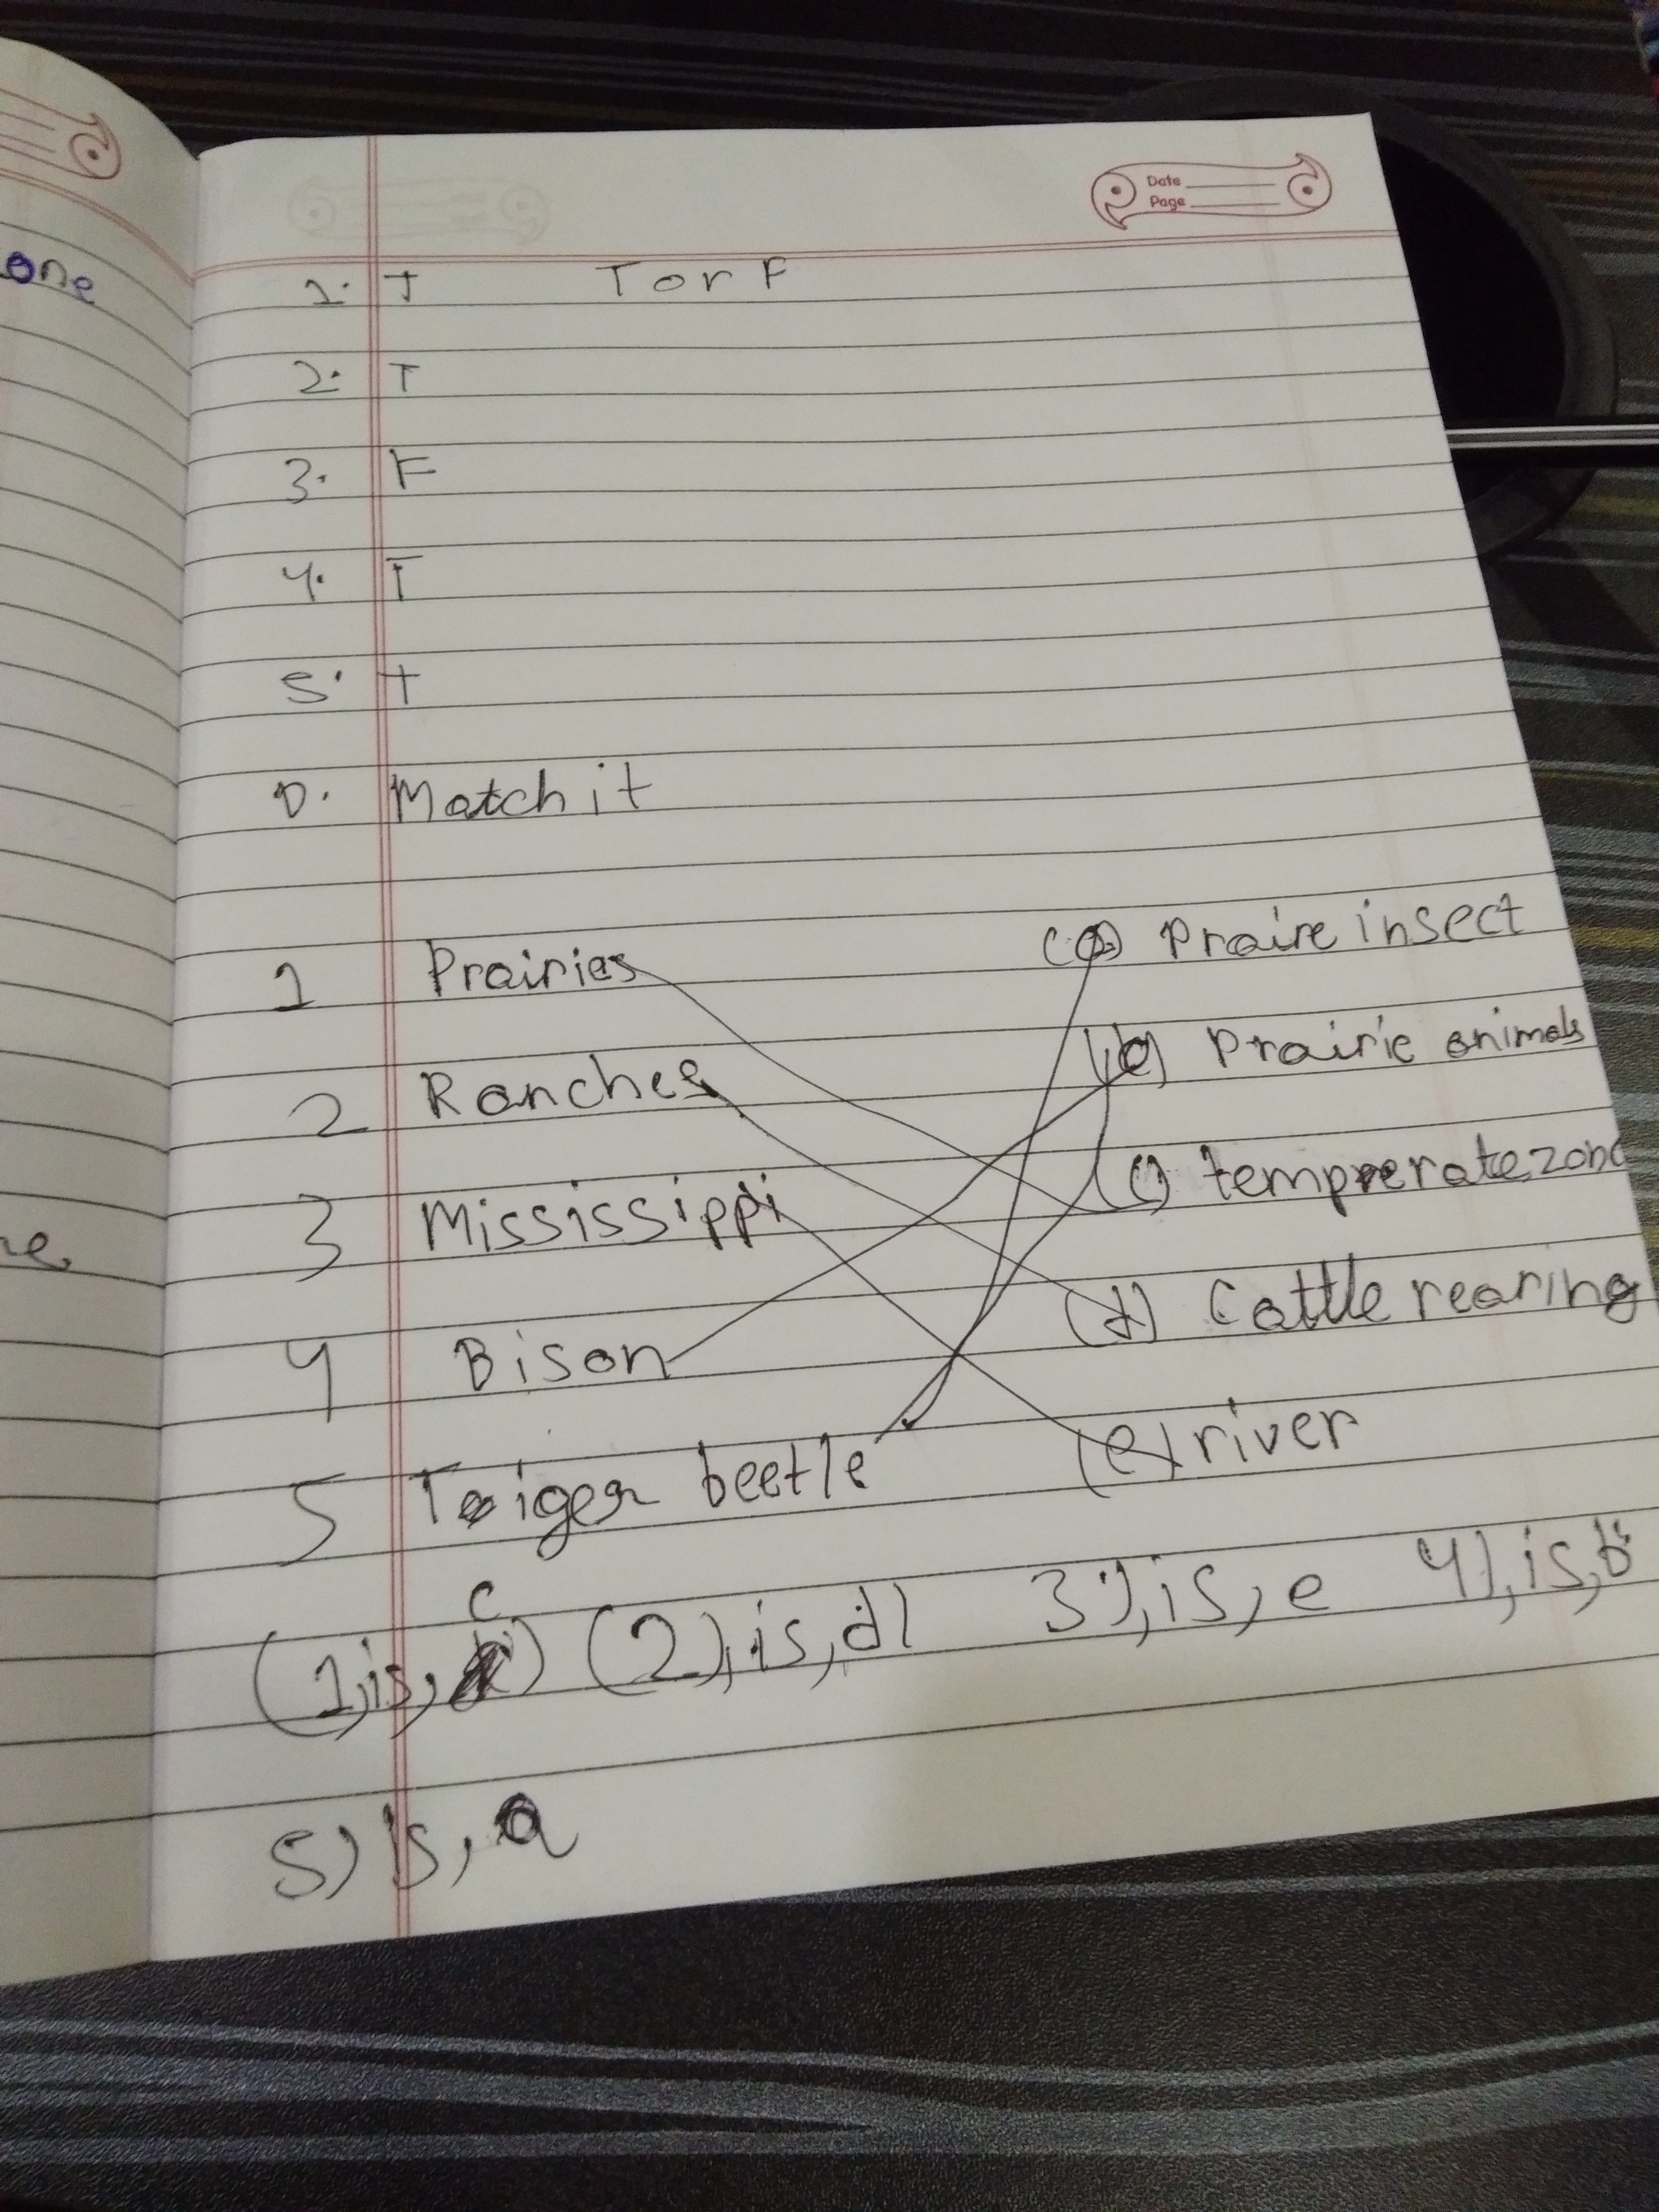 one
Date
Page
1. T T or F
2. T
3. F
4. T
5. T
D. Match it
1 Prairies (a) Praire insect
2 Ranches (b) Prairie animals
3 Mississippi (c) tempreratezone
4 Bison (d) Cattle rearing
5 Tiger beetle (e) river
c
(1,is, ) (2),is,d) 3),is, e 4),is,b
5) is, a